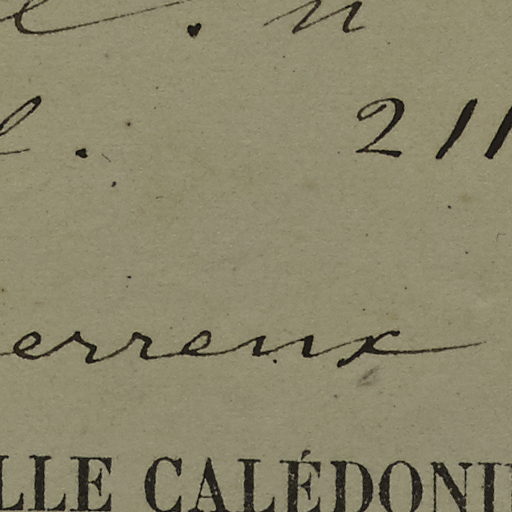 211
erreux
LLE CALÉDONI